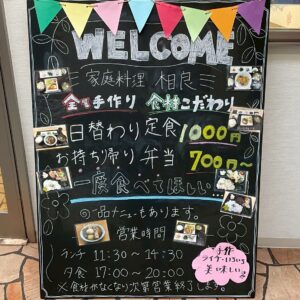 WELCOME
家庭料理 相良
全て手作り 食材こだわり
日替わり定食 1000円
お持ち帰り弁当 700円~
一度食べてほしい…
の一品メニューもあります。
営業時間
ランチ 11:30~14:30
夕食 17:00~20:00
※食材がなくなり次第営業終了します。
手作
美味しい